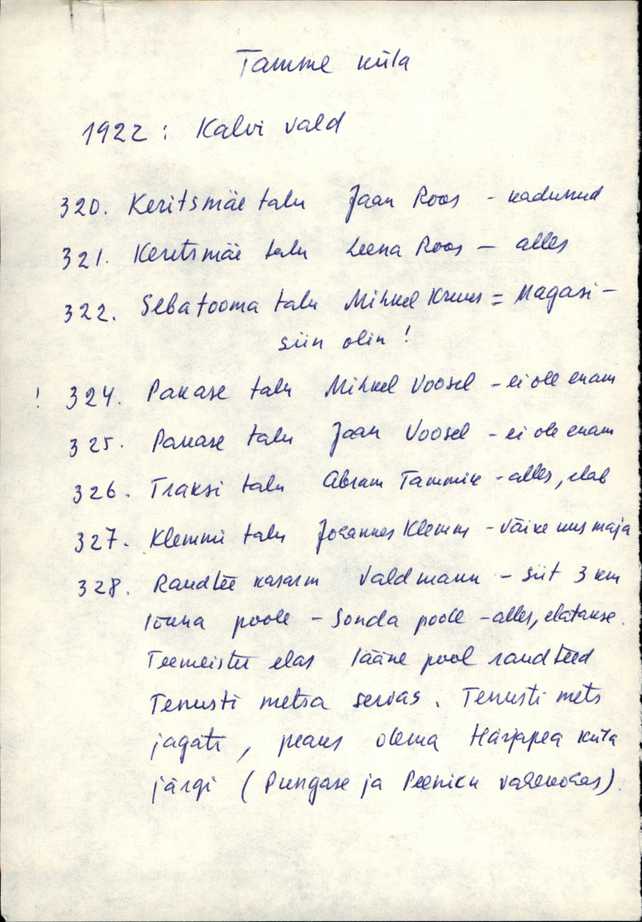 Tamme küla
1922: Kalvi vald
320. Keritsmäe talu Jaan Roos - kadunud
321. Keretsmäe talu Leena Roos - alles
322. Sebatooma talu Mihkel Kruus = Magasi-
siin olin!
! 324. Pakase talu Mihkel Voosel - ei ole enam
325. Pakase talu Jaan Voosel - ei ole enam
326. Traksi talu Abram Tammik - alles, elab
327. Klemmi talu Johannes Klemm - väike uus maja
328. Raudtee kasarm Valdmann - siit 3 km
lõuna poole - Sonda poole - alles, elatakse.
Teemeister elas lääne pool raudteed
Tennusti metsa servas. Tennusti mets
jagati, peaks olema Härjapea küla
järgi (Pungase ja Peeniku vahekohas).